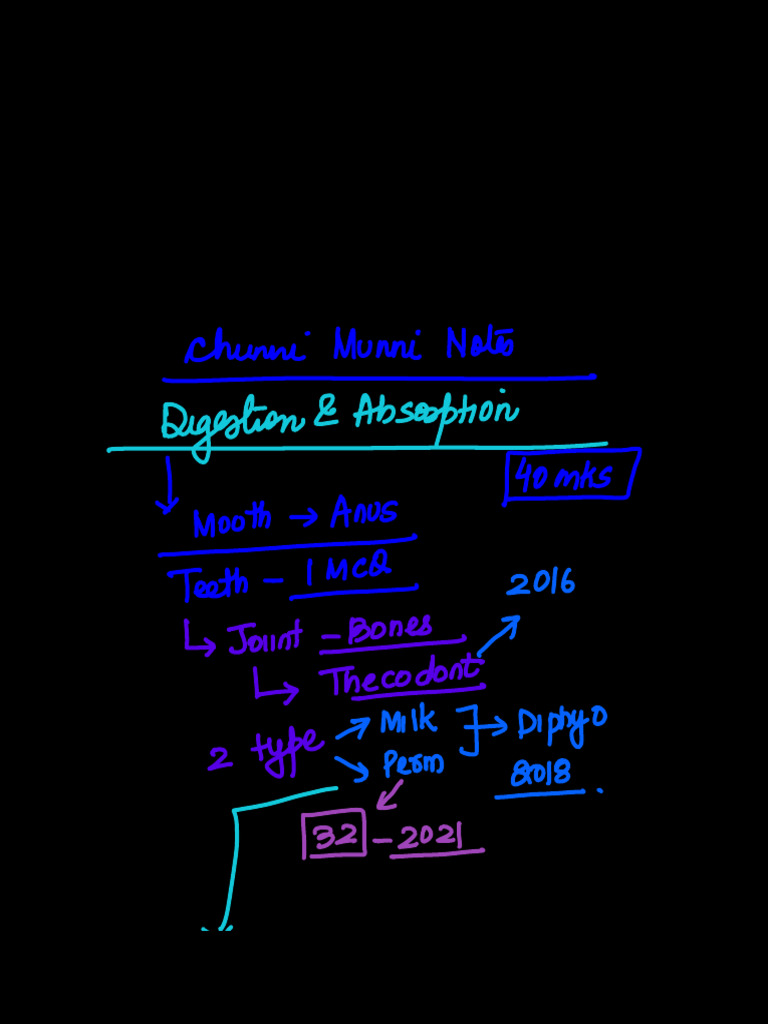 Chunni Munni Notes
Digestion & Absorption
40 mks
Mooth → Anus
Teeth - 1 MCQ
2016
↳ Joint - Bones
↳ Thecodont
2 type
Milk
Diphyo
Perm
2018
32 - 2021